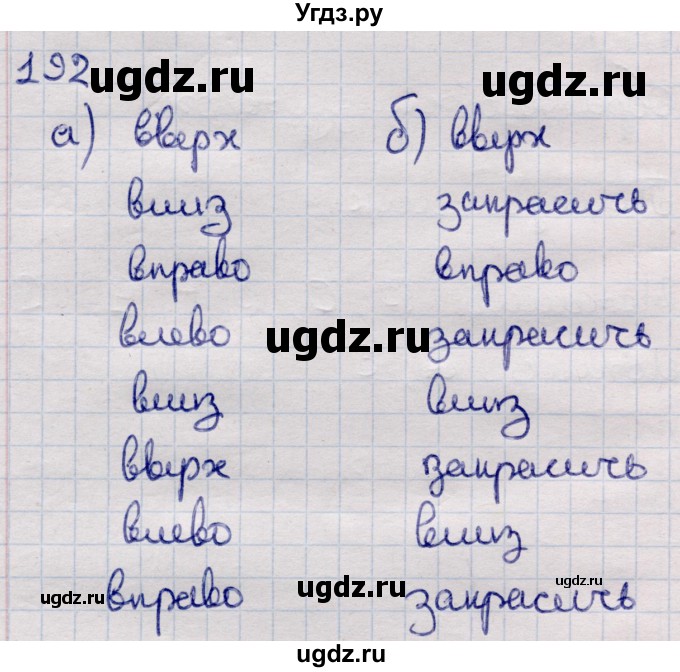 Угдз.ру
192 ugdz.ru ugdz.ru
а) вверх б) вверх
вниз закрасить
вправо вправо
влево ugdz.ru закрасить
вниз вниз
вверх закрасить
влево вниз
ugdz.ru вправо ugdz.ru закрасить ugdz.ru
ugdz.ru